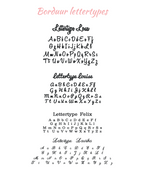 Borduur lettertypes
Lettertype Lou
Aa Bb Cc Dd Ee Ff
Gg Hh Ii Jj Kk Ll
Mm Nn Oo Pp Qq Rr Ss
Tt Uu Vv Ww Xx Yy Zz
Lettertype Louise
Aa Bb Cc Dd Ee Ff
Gg Hh Ii Jj Kk Ll
Mm Nn Oo Pp Qq Rr Ss
Tt Uu Vv Ww Xx Yy Zz
Lettertype Felix
Aa Bb Cc Dd Ee Ff
Gg Hh Ii Jj Kk Ll
Mm Nn Oo Pp Qq Rr Ss
Tt Uu Vv Ww Xx Yy Zz
Lettertype